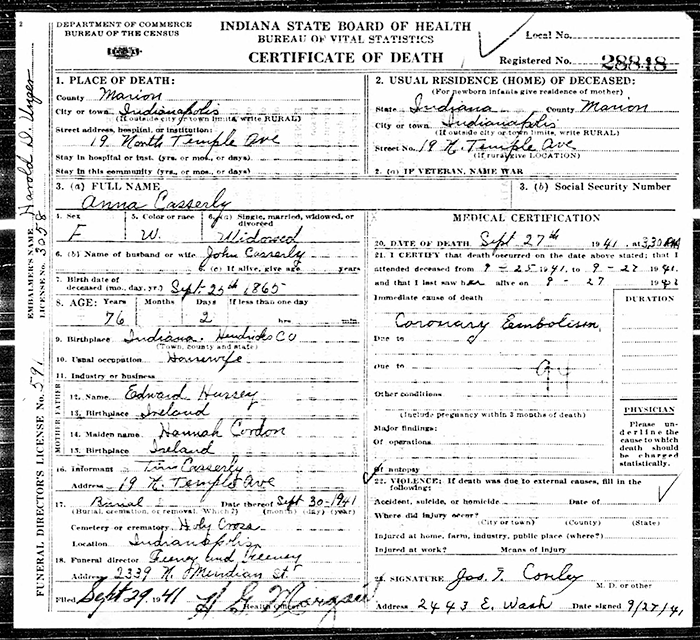 2
DEPARTMENT OF COMMERCE
BUREAU OF THE CENSUS
INDIANA STATE BOARD OF HEALTH
BUREAU OF VITAL STATISTICS
CERTIFICATE OF DEATH
Local No.
Registered No. 28818
1. PLACE OF DEATH:
County Marion
City or town Indianapolis
(If outside city or town limits, write RURAL)
Street address, hospital, or institution:
19 North Temple Ave
Stay in hospital or inst. (yrs. or mos., or days).
Stay in this community (yrs., or mos., or days).
2. USUAL RESIDENCE (HOME) OF DECEASED:
(For newborn infants give residence of mother)
State Indiana County Marion
City or town Indianapolis
(If outside city or town limits, write RURAL)
Street No. 19 N. Temple Ave
(If rural give LOCATION)
2. (a) IF VETERAN, NAME WAR
3. (a) FULL NAME
Anna Casserly
3. (b) Social Security Number
4. Sex
F
5. Color or race
W.
6. (a) Single, married, widowed, or divorced
Widowed
6. (b) Name of husband or wife John Casserly
6. (c) If alive, give age years
7. Birth date of
deceased (mo., day, yr.) Sept 25th 1865
8. AGE: Years Months Days If less than one day
76 2 hr. min.
9. Birthplace Indiana. Hendricks Co
(Town, county and state)
10. Usual occupation Housewife
11. Industry or business
FATHER
12. Name Edward Hussey
13. Birthplace Ireland
MOTHER
14. Maiden name Hannah Condon
15. Birthplace Ireland
16. Informant Tim Casserly
Address 19 N. Temple Ave
17. Burial Date thereof Sept 30-1941
(Burial, cremation, or removal. Which?) (month) (day) (year)
Cemetery or crematory Holy Cross
Location Indianapolis
18. Funeral director Feeney and Feeney
Address 2339 N. Meridian St.
Filed Sept 29, 1941 H G Morgan
Health Officer
MEDICAL CERTIFICATION
20. DATE OF DEATH Sept 27th 1941, at 3:30
21. I CERTIFY that death occurred on the date above stated; that I
attended deceased from 9-25 1941, to 9-27 1941.
and that I last saw her alive on 9-27 1941
Immediate cause of death
DURATION
Coronary Embolism,
Due to
Due to 94
Other conditions
(Include pregnancy within 3 months of death)
Major findings:
Of operations
Of autopsy
PHYSICIAN
Please underline
the cause to
which death
should be
charged
statistically.
22. VIOLENCE: If death was due to external causes, fill in the
following:
Accident, suicide, or homicide Date of
Where did injury occur?
(City or town) (County) (State)
Injured at home, farm, industry, public place (where?)
Injured at work? Means of injury
23. SIGNATURE Jos. T. Conley
M. D. or other
Address 2443 E. Wash Date signed 9/27/41
EMBALMER'S NAME Harold D. Unger
LICENSE No. 3058
FUNERAL DIRECTOR'S LICENSE No. 591